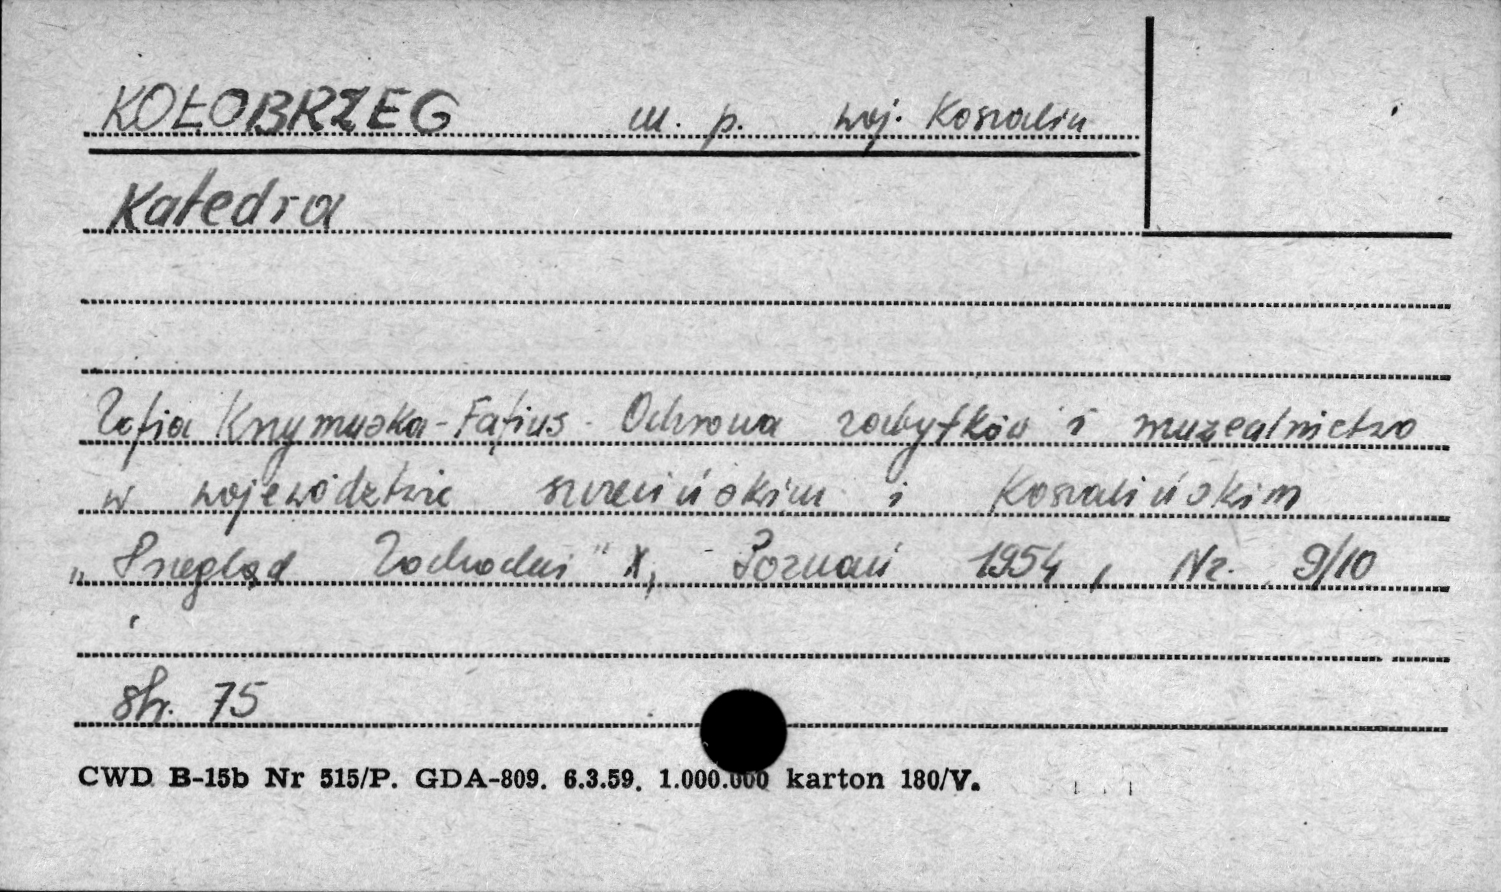 KOŁOBRZEG m. p. woj. Koszalin
Katedra
Zofia Krzymuska-Fafius - Ochrona zabytków i muzealnictwo
w województwie szczecińskim i Koszalińskim
„Przegląd Zachodni" X, - Poznań 1954, Nr. 9/10
str. 75
CWD B-15b Nr 515/P. GDA-809. 6.3.59. 1.000.000 karton 180/V.